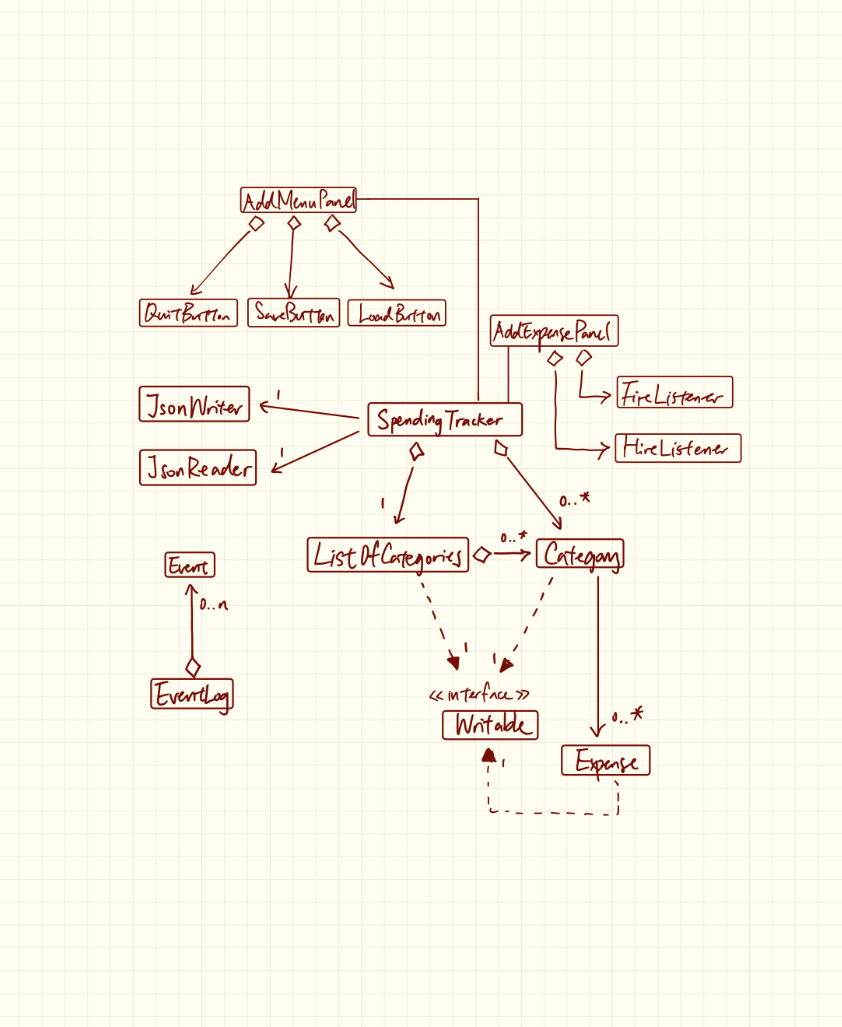 AddMenuPanel
QuitButton
SaveButton
LoadButton
AddExpensePanel
FireListener
HireListener
JsonWriter
1
SpendingTracker
JsonReader
1
1
0..*
ListOfCategories
0..*
Category
Event
0..n
EventLog
1
1
<<interface>>
Writable
0..*
Expense
1